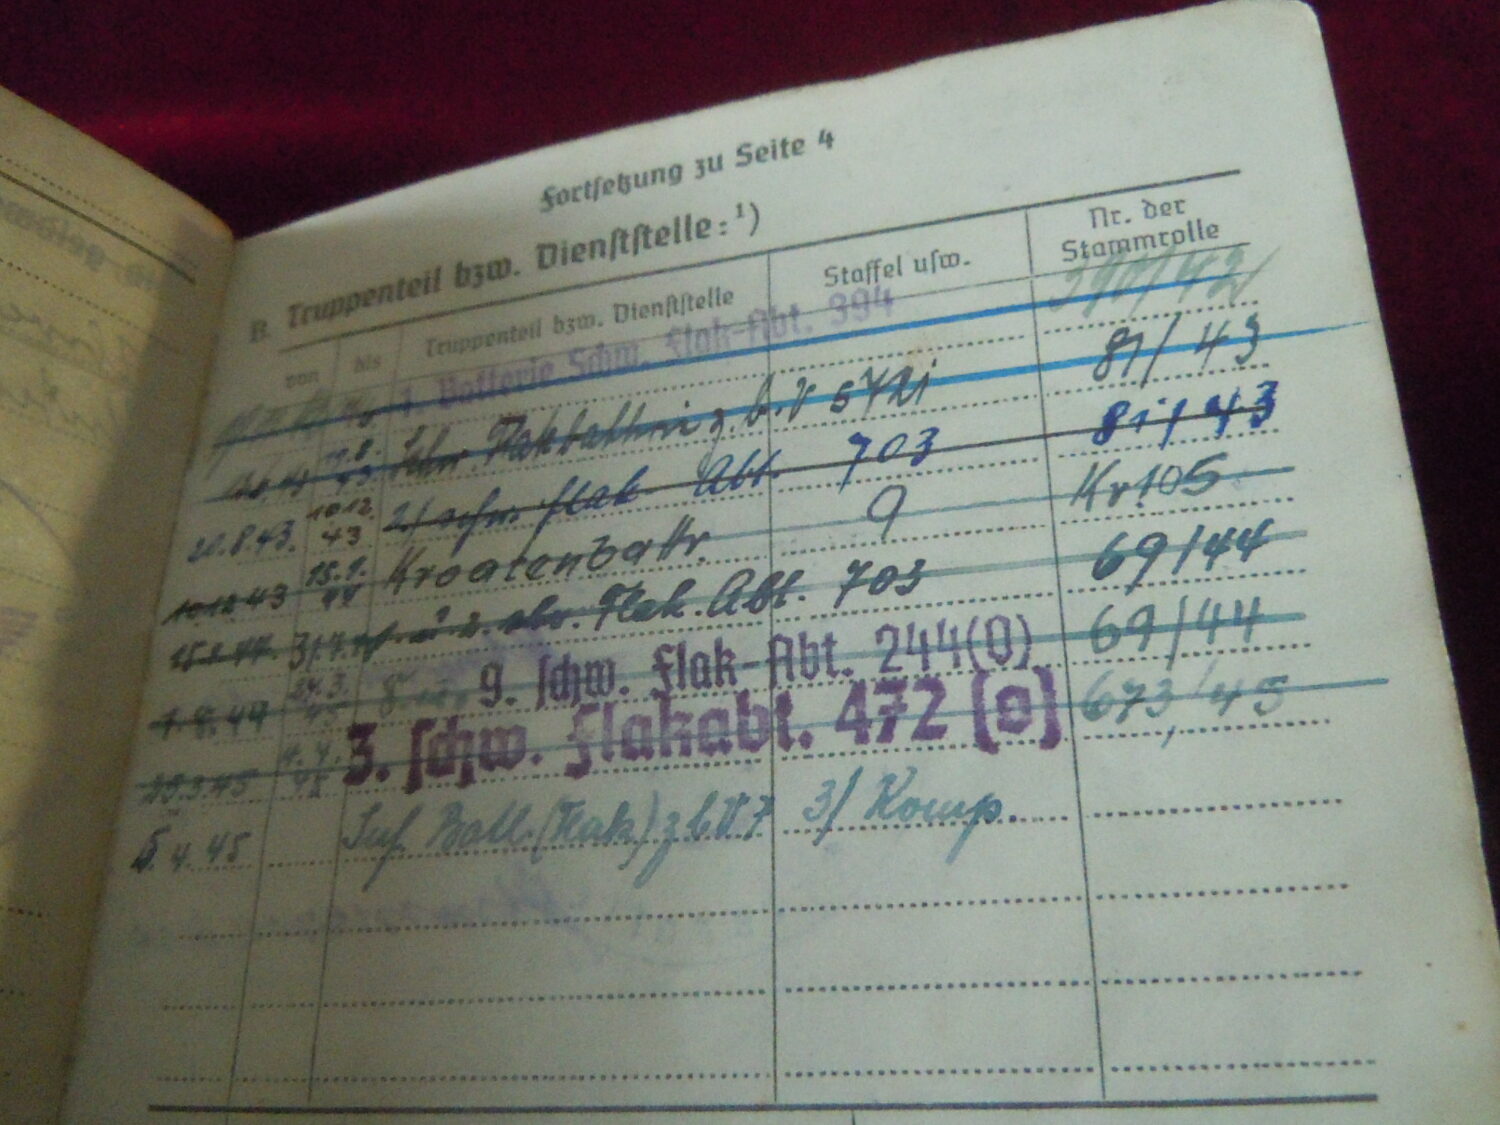 Fortsetzung zu Seite 4
B. Truppenteil bzw. Dienststelle:¹)
von bis Truppenteil bzw. Dienststelle Staffel usw. Nr. der Stammrolle
1. Batterie Schw. Flak-Abt. 394 390/42
11.8. 43 Schw. Flakbatterie z.b.V 5721 81/43
20.8.43. 10.12. 43 2/ schw. flak Abt. 703 81/43
10.12 43 15.1. 44 Kroatenbattr. 9 Kr.105
15.1 44. 31.7. Flak. Abt. 703 69/44
1.8.44 24.3. 45 9. schw. Flak-Abt. 244(O) 69/44
25.3.45 4.4. 3. schw. Flakabt. 472 (o) 673/45
5.4.45 Inf. Batl. (Flak) z b V 7 3/ Komp.